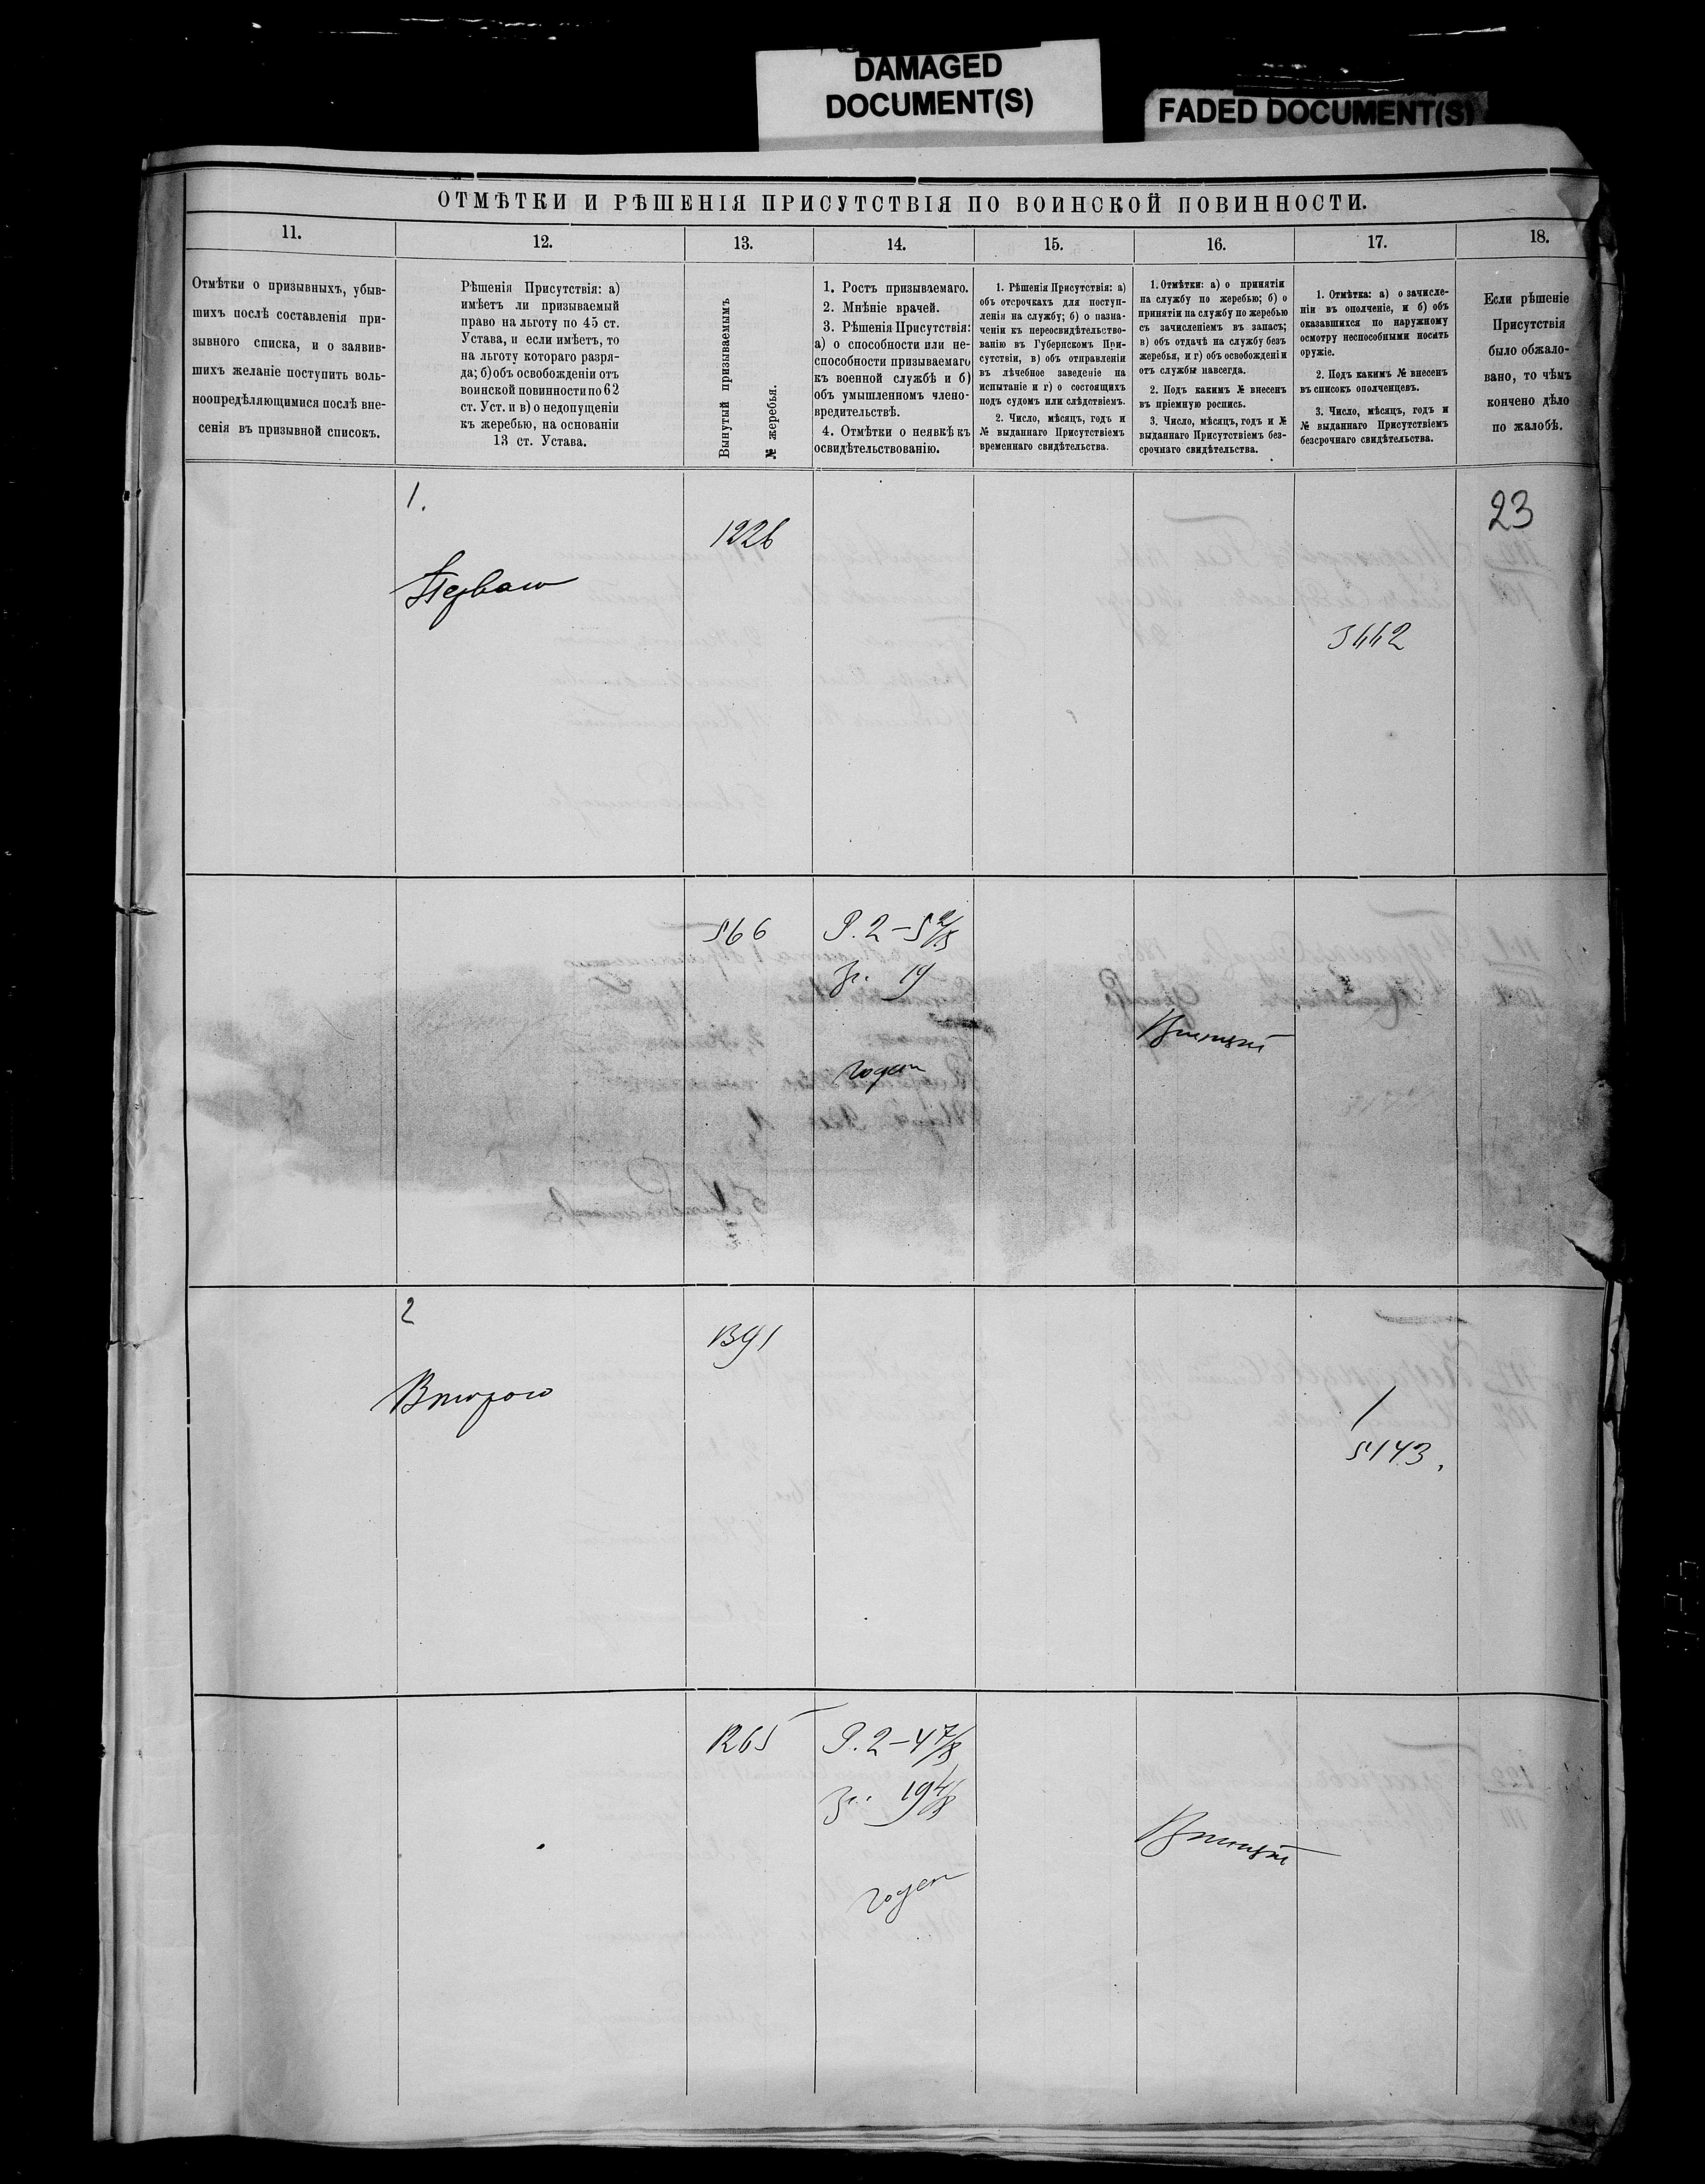 DAMAGED
DOCUMENT(S)
FADED DOCUMENT(S)
ОТМѢТКИ И РѢШЕНІЯ ПРИСУТСТВІЯ ПО ВОИНСКОЙ ПОВИННОСТИ.
11.
12.
13.
14.
15.
16.
17.
18.
Отмѣтки о призывныхъ, убыв-
шихъ послѣ составленія при-
зывного списка, и о заявив-
шихъ желаніе поступить воль-
ноопредѣляющимися послѣ вне-
сенія въ призывной списокъ.
Рѣшенія Присутствія: а)
имѣетъ ли призываемый
право на льготу по 45 ст.
Устава, и если имѣетъ, то
на льготу котораго разря-
да; б) объ освобожденіи отъ
воинской повинности по 62
ст. Уст. и в) о недопущеніи
къ жеребью, на основаніи
13 ст. Устава.
Вынутый призываемымъ
№ жеребья.
1. Ростъ призываемаго.
2. Мнѣніе врачей.
3. Рѣшенія Присутствія:
а) о способности или не-
способности призываемаго
къ военной службѣ и б)
объ умышленномъ члено-
вредительствѣ.
4. Отмѣтки о неявкѣ къ
освидѣтельствованію.
1. Рѣшенія Присутствія: а)
объ отсрочкахъ для поступ-
ленія на службу; б) о назна-
ченіи къ переосвидѣтельство-
ванію въ Губернскомъ При-
сутствіи, в) объ отправленіи
въ лѣчебное заведеніе на
испытаніе и г) о состоящихъ
подъ судомъ или слѣдствіемъ.
2. Число, мѣсяцъ, годъ и
№ выданнаго Присутствіемъ
временнаго свидѣтельства.
1. Отмѣтки: а) о принятіи
на службу по жеребью; б) о
принятіи на службу по жеребью
съ зачисленіемъ въ запасъ;
в) объ отдачѣ на службу безъ
жеребья, и г) объ освобожденіи
отъ службы навсегда.
2. Подъ какимъ № внесенъ
въ пріемную роспись.
3. Число, мѣсяцъ, годъ и №
выданнаго Присутствіемъ без-
срочнаго свидѣтельства.
1. Отмѣтка: а) о зачисле-
ніи въ ополченіе, и б) объ
оказавшихся по наружному
осмотру неспособными носить
оружіе.
2. Подъ какимъ № внесенъ
въ списокъ ополченцевъ.
3. Число, мѣсяцъ, годъ и
№ выданнаго Присутствіемъ
безсрочнаго свидѣтельства.
Если рѣшеніе
Присутствія
было обжало-
вано, то чѣмъ
кончено дѣло
по жалобѣ.
1.
Перваго
1226
3442
23
566
Р. 2 – 5 2/8
Гр. 19
годен
Принятъ
2
Второго
1391
5143.
1265
Р. 2 – 4 7/8
Гр. 19 4/8
годен
Принятъ